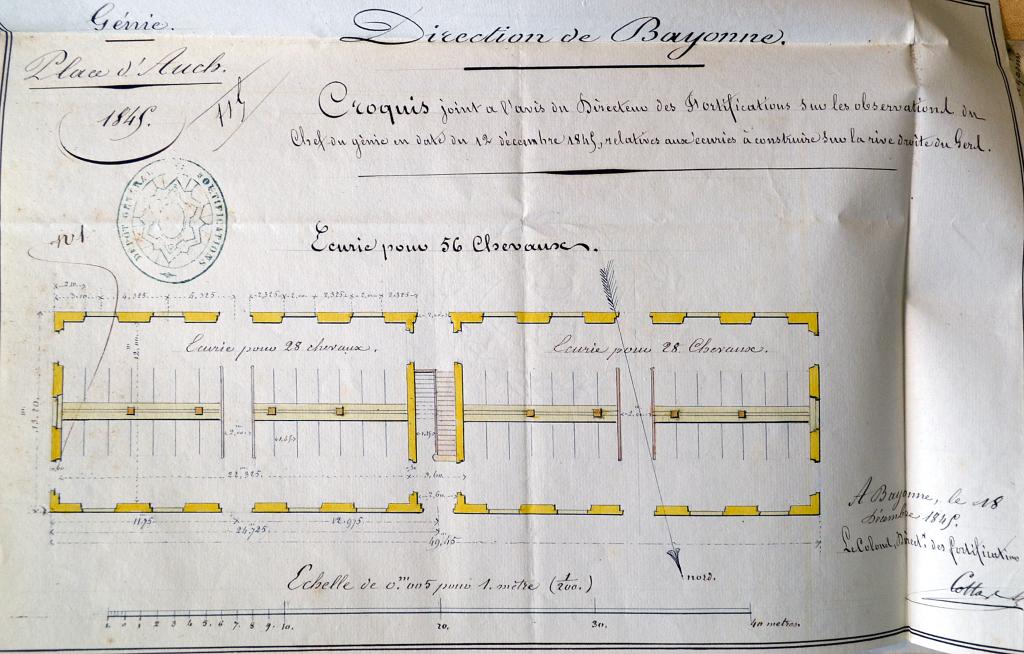 Génie.
Direction de Bayonne.
Place d'Auch.
1845.
Croquis joint a l'avis du Directeur des Fortifications sur les observations du
Chef du génie en date du 12 décembre 1845, relatives aux écuries à construire sur la rive droite du Gers.
DÉPÔT GÉNÉRAL FORTIFICATIONS
Ecurie pour 56 Chevaux.
3,10 4,325 4,325 2,325 2,00 2,325 2,00 2,325
Ecurie pour 28 chevaux.
Ecurie pour 28 Chevaux.
12,00
13,20
2,00
1,45
2,00
22,325
3,60
2,60
11,75
12,975
24,725
49,45
A Bayonne, le 18
Décembre 1845.
Le Colonel, Direct.r des fortifications
nord.
Echelle de 0,m005 pour 1. mètre (1/200.)
1. 0 1 2 3 4 5 6 7. 8 9. 10. 20. 30. 40 metres.